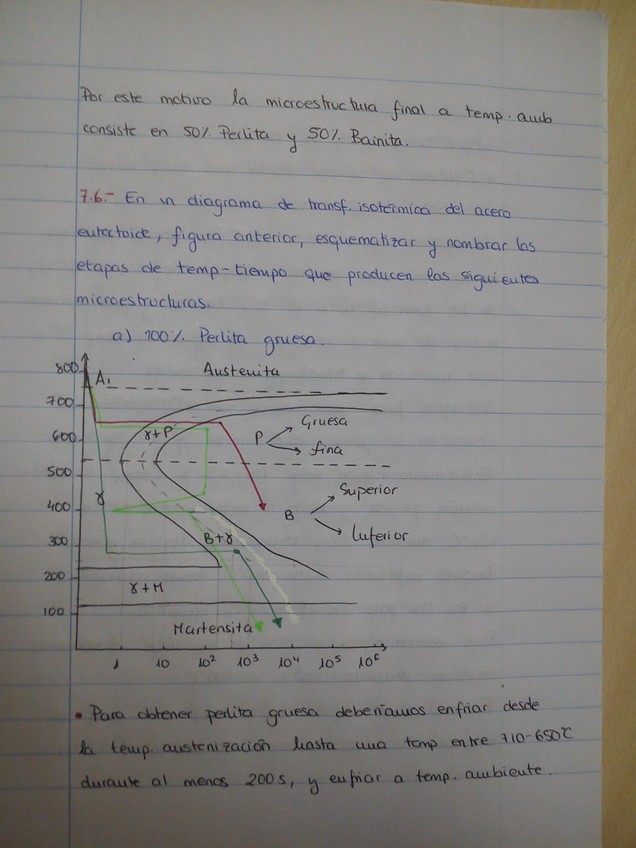 Por este motivo la microestructura final a temp. amb
consiste en 50% Perlita y 50% Bainita.
7.6.- En un diagrama de transf. isotérmica del acero
eutectoide, figura anterior, esquematizar y nombrar las
etapas de temp-tiempo que producen las siguientes
microestructuras.
a) 100% Perlita gruesa.
800
A₁
Austenita
700
Gruesa
600
γ+P
P
fina
500
γ
Superior
400
B
300
B+γ
Inferior
200
γ+M
100
Martensita
1 10 10² 10³ 10⁴ 10⁵ 10⁶
• Para obtener perlita gruesa deberíamos enfriar desde
la temp. austenización hasta una temp entre 710-650ºC
durante al menos 200s, y enfriar a temp. ambiente.